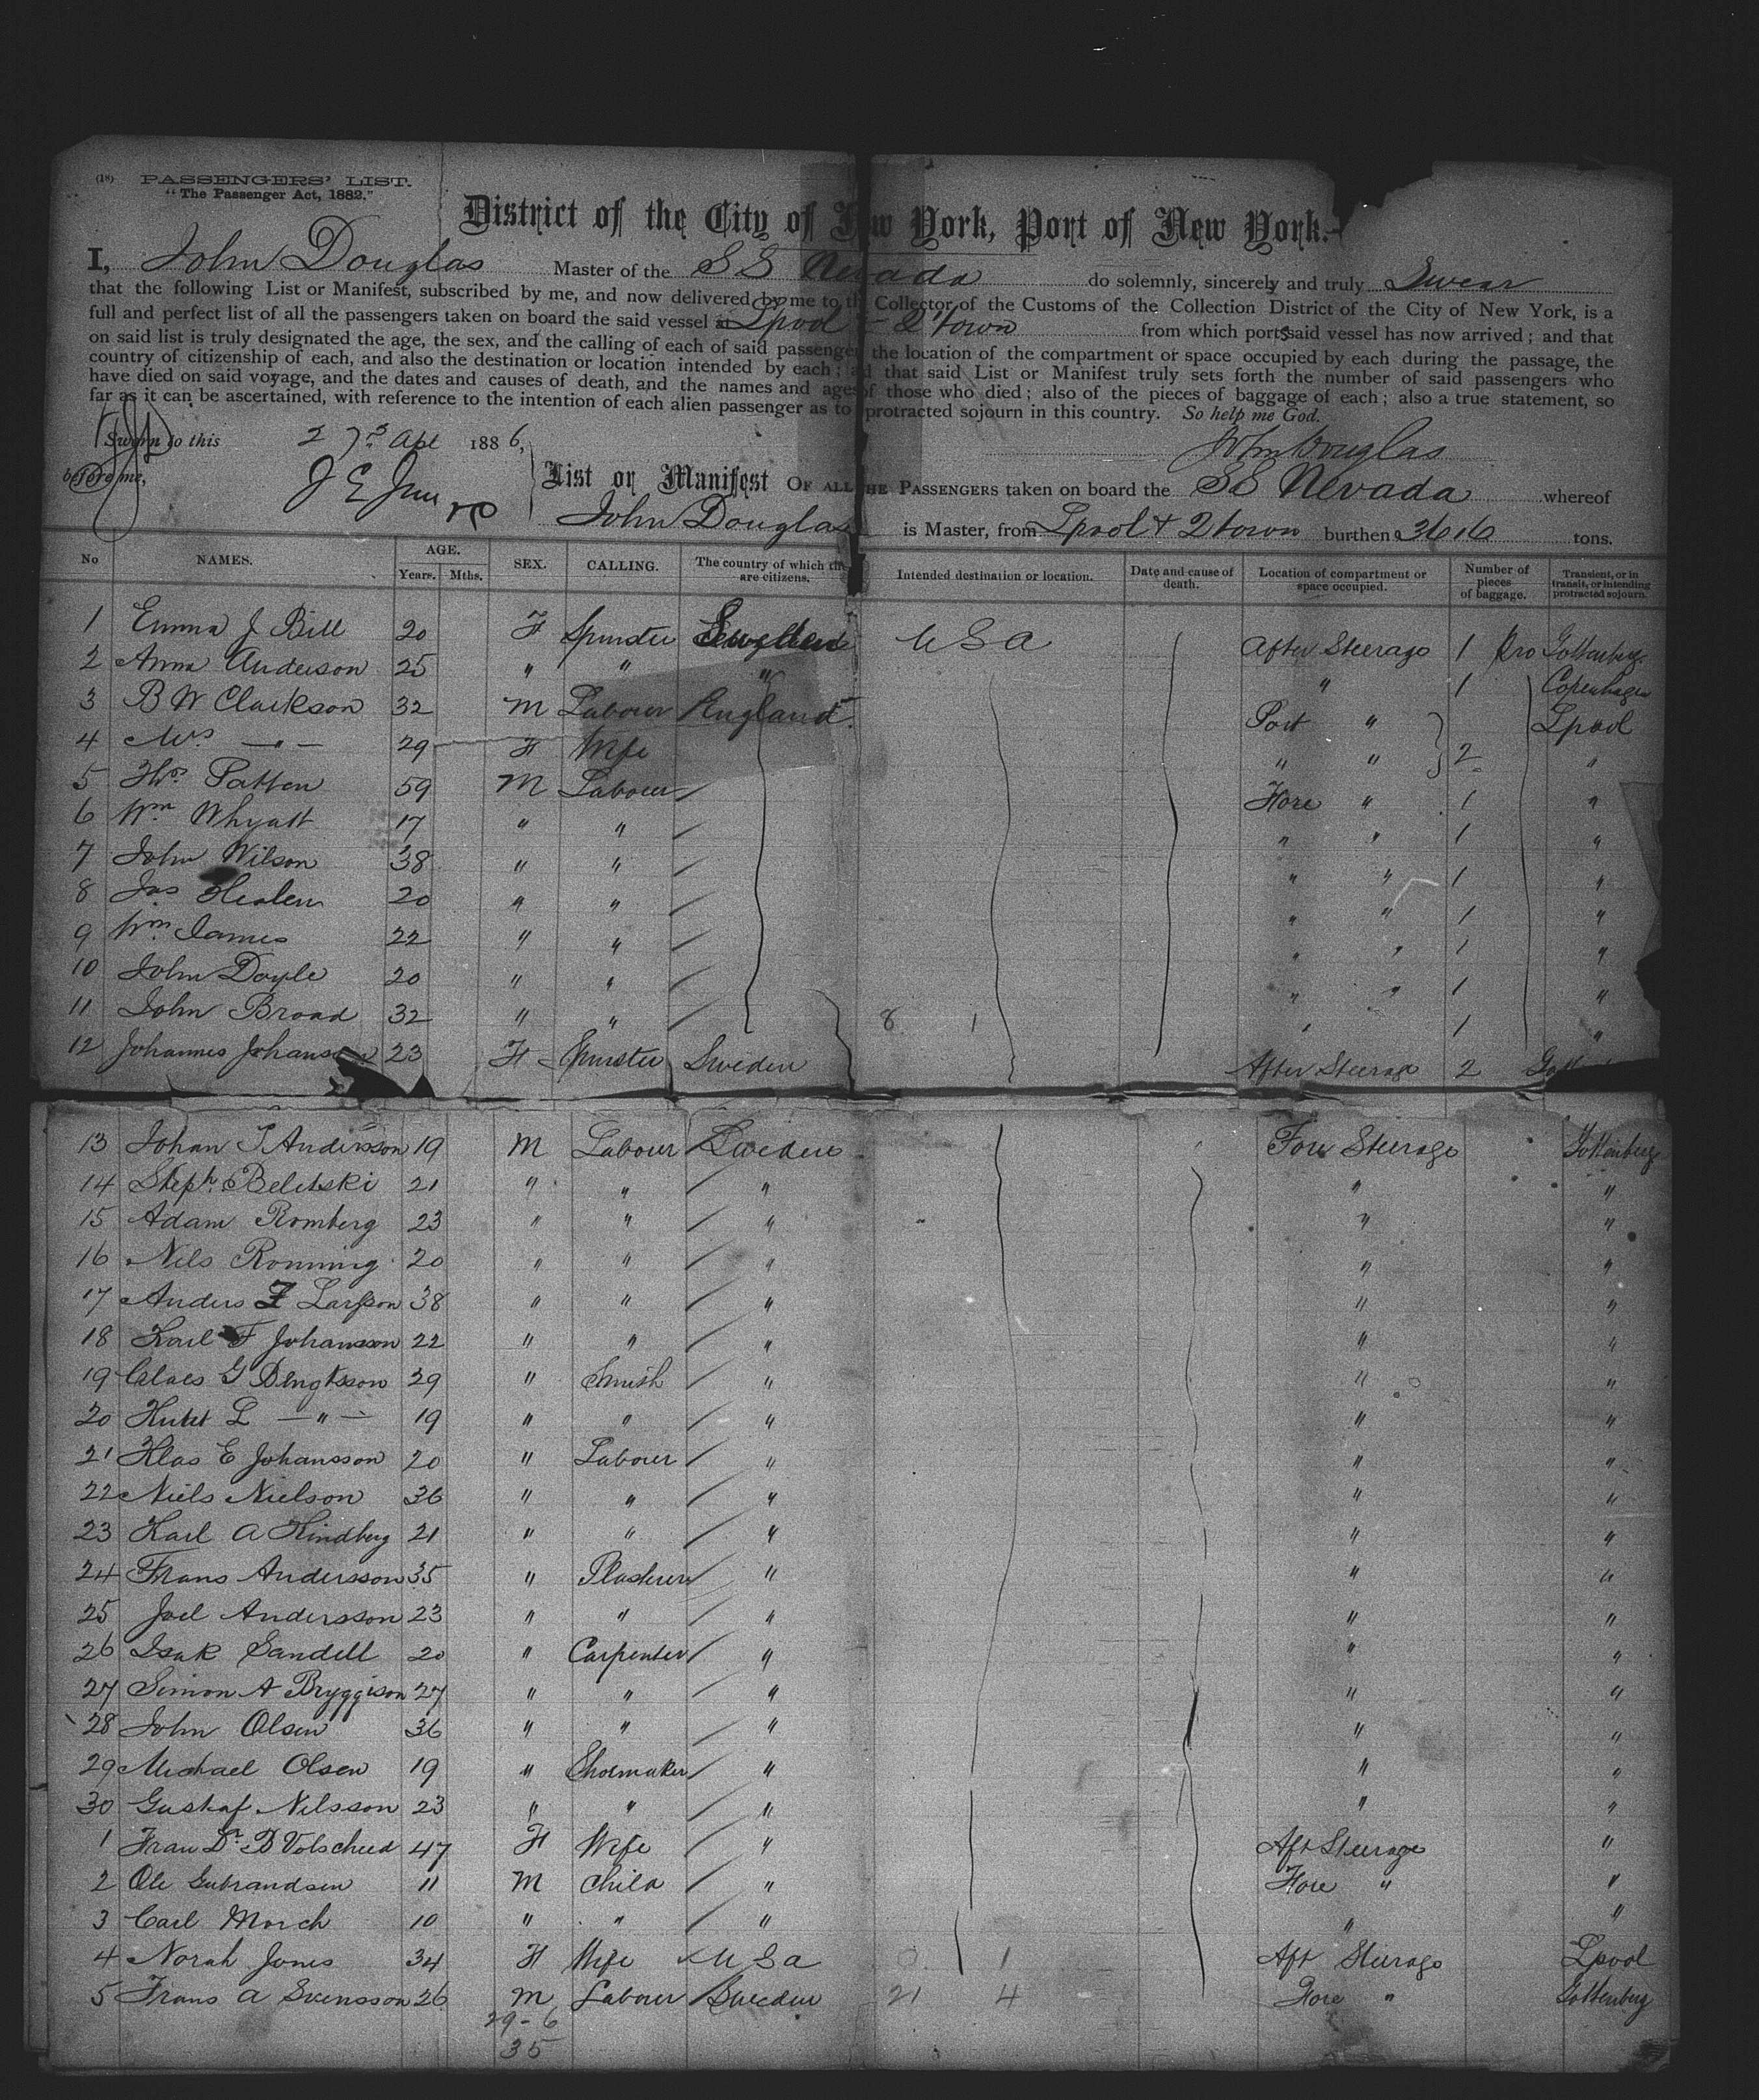 (18) PASSENGERS' LIST.
"The Passenger Act, 1882."
District of the City of New York, Port of New York.
I, John Douglas Master of the SS Nevada do solemnly, sincerely and truly Swear
that the following List or Manifest, subscribed by me, and now delivered by me to the Collector of the Customs of the Collection District of the City of New York, is a
full and perfect list of all the passengers taken on board the said vessel at Lpool - Qtown from which ports said vessel has now arrived; and that
on said list is truly designated the age, the sex, and the calling of each of said passenger the location of the compartment or space occupied by each during the passage, the
country of citizenship of each, and also the destination or location intended by each; and that said List or Manifest truly sets forth the number of said passengers who
have died on said voyage, and the dates and causes of death, and the names and ages of those who died; also of the pieces of baggage of each; also a true statement, so
far as it can be ascertained, with reference to the intention of each alien passenger as to protracted sojourn in this country. So help me God.
Sworn to this 27 Apl 1886, John Douglas
before me, List or Manifest OF ALL THE PASSENGERS taken on board the SS Nevada whereof
John Douglas is Master, from Lpool & Qtown burthen 3616 tons.
No NAMES. AGE. Years. Mths. SEX. CALLING. The country of which they are citizens. Intended destination or location. Date and cause of death. Location of compartment or space occupied. Number of pieces of baggage. Transient, or in transit, or intending protracted sojourn.
1 Emma J Bill 20 F Spinster Sweden USA After Steerage 1 Pro Gottenberg
2 Anna Anderson 25 " " " " 1 Copenhagen
3 B W Clarkson 32 M Labour England Port " Lpool
4 Mrs — " — 29 F Wife " " 2 "
5 Thos Patten 59 M Labour Fore " 1 "
6 Wm Whyatt 17 " " " " 1 "
7 John Wilson 38 " " " " 1 "
8 Jas 20 " " " " 1 "
9 Wm James 22 " " " " 1 "
10 John Doyle 20 " " " " 1 "
11 John Broad 32 " " 8 1 " 1 "
12 Johannes Johansson 23 F Spinster Sweden After Steerage 2
13 Johan Andersson 19 M Labour Sweden Fore Steerage Gottenberg
14 Steph Beletski 21 " " " " "
15 Adam Romberg 23 " " " " "
16 Nils Ronning 20 " " " " "
17 Anders F Larsson 38 " " " " "
18 Karl F Johansson 22 " " " " "
19 Claes G Bengtsson 29 " Smith " " "
20 L — " — 19 " " " " "
21 Klas E Johansson 20 " Labour " " "
22 Niels Nielson 36 " " " " "
23 Karl A Kindberg 21 " " " " "
24 Frans Andersson 35 " Plasterer " " "
25 Joel Andersson 23 " " " " "
26 Isak Sandell 20 " Carpenter " " "
27 Simon A Bryggison 27 " " " " "
28 John Olsen 36 " " " " "
29 Michael Olsen 19 " Shoemaker " " "
30 Gustaf Nilsson 23 " " " " "
1 Frau Dr B 47 F Wife " Aft Steerage "
2 Ole Gubrandsen 11 M Child " Fore " "
3 Carl Morch 10 " " " " "
4 Norah Jones 34 F Wife USA 0 1 Aft Steerage Lpool
5 Frans A Svensson 26 M Labour Sweden 21 4 Fore " Gottenberg
29-6
35